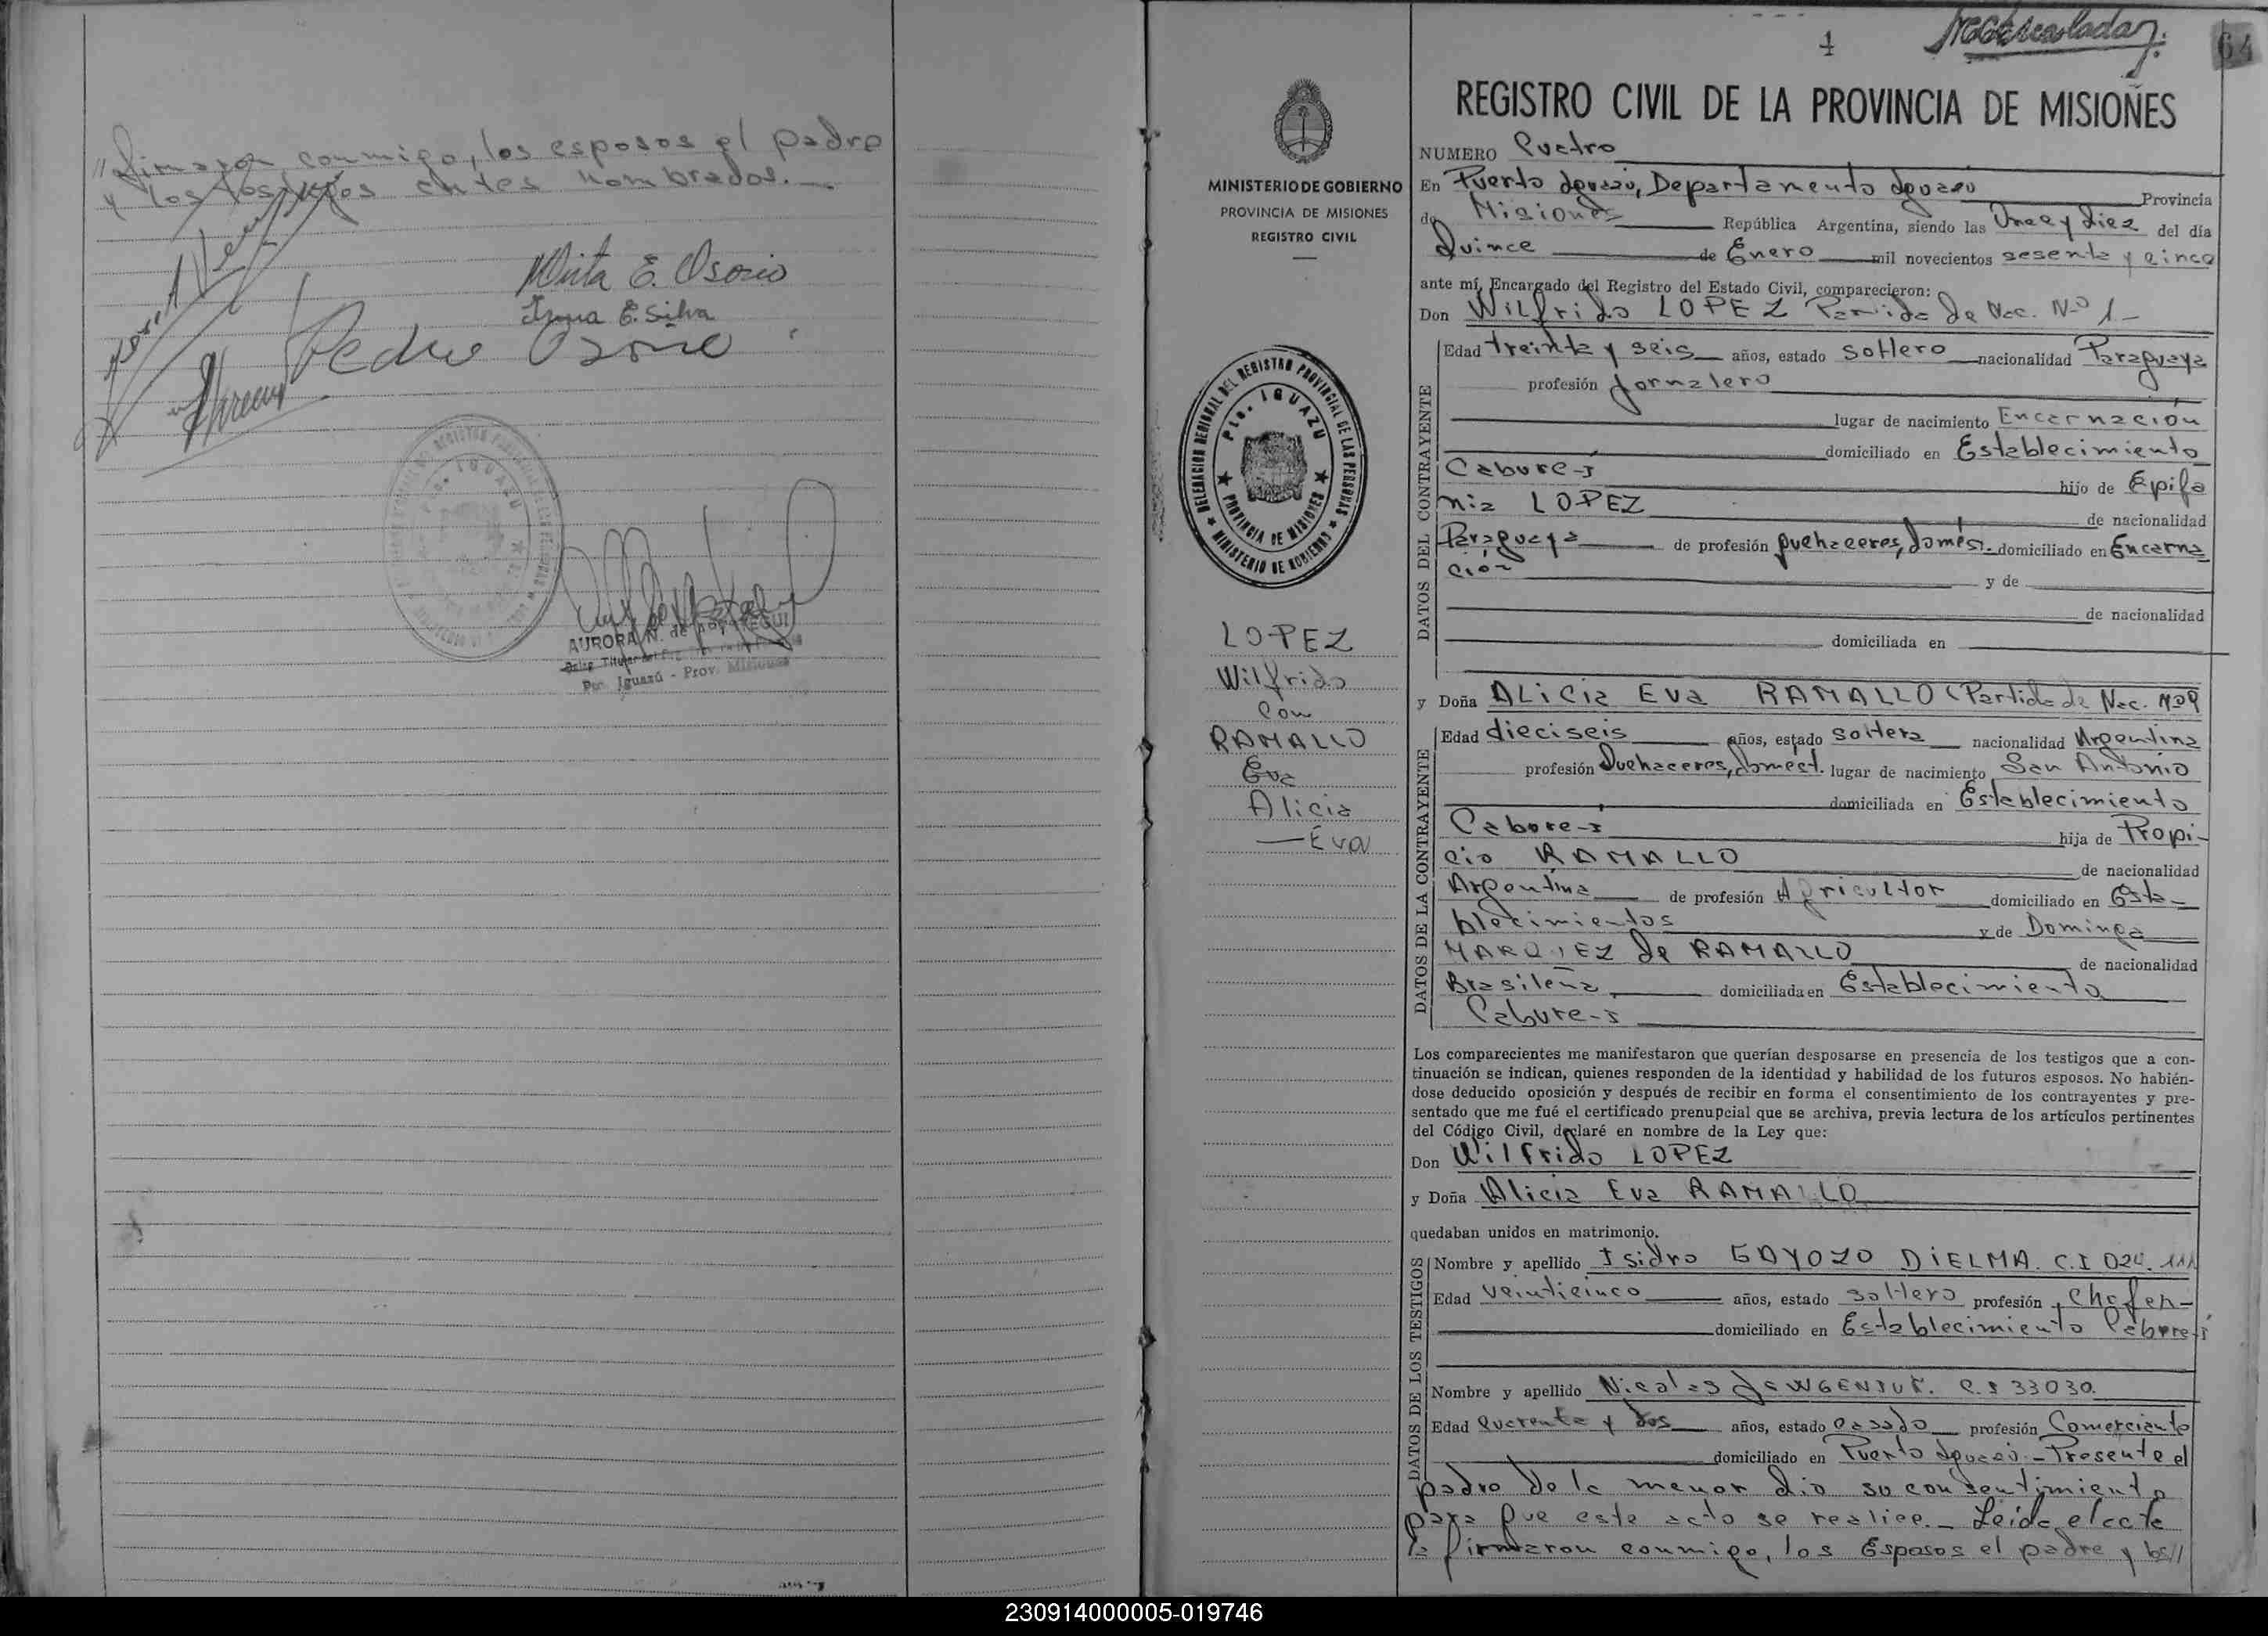 "firmaron conmigo, los esposos el padre
y los testigos antes nombrados.—
Mirta E. Osorio
Irma E. Silva
Pedro Osorio
AURORA N. de
Pto. Iguazú - Prov. Misiones
4
64
REGISTRO CIVIL DE LA PROVINCIA DE MISIONES
MINISTERIO DE GOBIERNO
PROVINCIA DE MISIONES
REGISTRO CIVIL
DELEGACION REGIONAL DEL REGISTRO PROVINCIAL DE LAS PERSONAS
Pto. IGUAZU
PROVINCIA DE MISIONES
MINISTERIO DE GOBIERNO
LOPEZ
Wilfrido
con
RAMALLO
Eva
Alicia
— Eva
NUMERO Cuatro
En Puerto Iguazú, Departamento Iguazú Provincia
de Misiones República Argentina, siendo las Once y diez del día
Quince de Enero mil novecientos sesenta y cinco
ante mí, Encargado del Registro del Estado Civil, comparecieron:
Don Wilfrido LOPEZ Partida de Nac. Nº 1-
DATOS DEL CONTRAYENTE
Edad treinta y seis años, estado soltero nacionalidad Paraguaya
profesión Jornalero
lugar de nacimiento Encarnación
domiciliado en Establecimiento
Cabure-í
hijo de Epifa
nia LOPEZ
de nacionalidad
Paraguaya de profesión quehaceres domést. domiciliado en Encarna
ción
y de
de nacionalidad
domiciliada en
y Doña ALicia Eva RAMALLO (Partida de Nac. Nº9
DATOS DE LA CONTRAYENTE
Edad dieciseis años, estado soltera nacionalidad Argentina
profesión Quehaceres, domest. lugar de nacimiento San Antonio
domiciliada en Establecimiento
Cabure-í
hija de Propi-
cio RAMALLO
de nacionalidad
Argentina de profesión Agricultor domiciliado en Esta-
blecimientos
y de Dominga
MARQUEZ de RAMALLO
de nacionalidad
Brasileña, domiciliada en Establecimiento
Cabure-í
Los comparecientes me manifestaron que querían desposarse en presencia de los testigos que a con-
tinuación se indican, quienes responden de la identidad y habilidad de los futuros esposos. No habién-
dose deducido oposición y después de recibir en forma el consentimiento de los contrayentes y pre-
sentado que me fué el certificado prenupcial que se archiva, previa lectura de los artículos pertinentes
del Código Civil, declaré en nombre de la Ley que:
Don Wilfrido LOPEZ
y Doña Alicia Eva RAMALLO
quedaban unidos en matrimonio.
DATOS DE LOS TESTIGOS
Nombre y apellido Isidro GAYOZO DIELMA. C.I 024.111
Edad veinticinco años, estado soltero profesión Chofer-
domiciliado en Establecimiento Cabure-í
Nombre y apellido Nicolas C.I 33030.
Edad cuarenta y dos años, estado casado profesión Comerciante
domiciliado en Puerto Iguazú.- Presente el
padre de la menor dio su consentimiento
para que este acto se realice.- Leida el acta
la firmaron conmigo, los Esposos el padre y los//
230914000005-019746